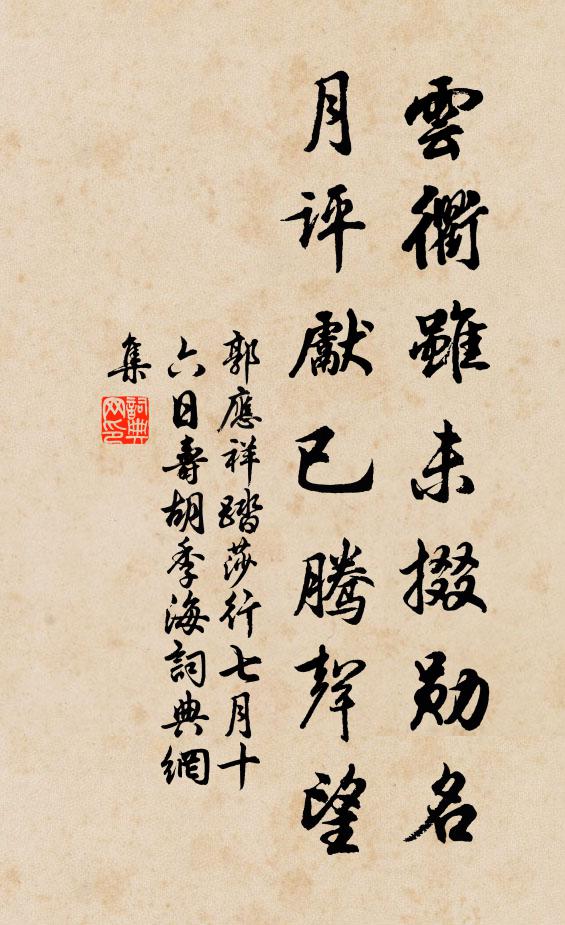 雲衢雖未掇勛名
月評獻已騰聲望
郭應祥踏莎行七月十
六日壽胡季海詞典網
集
詞典
网印